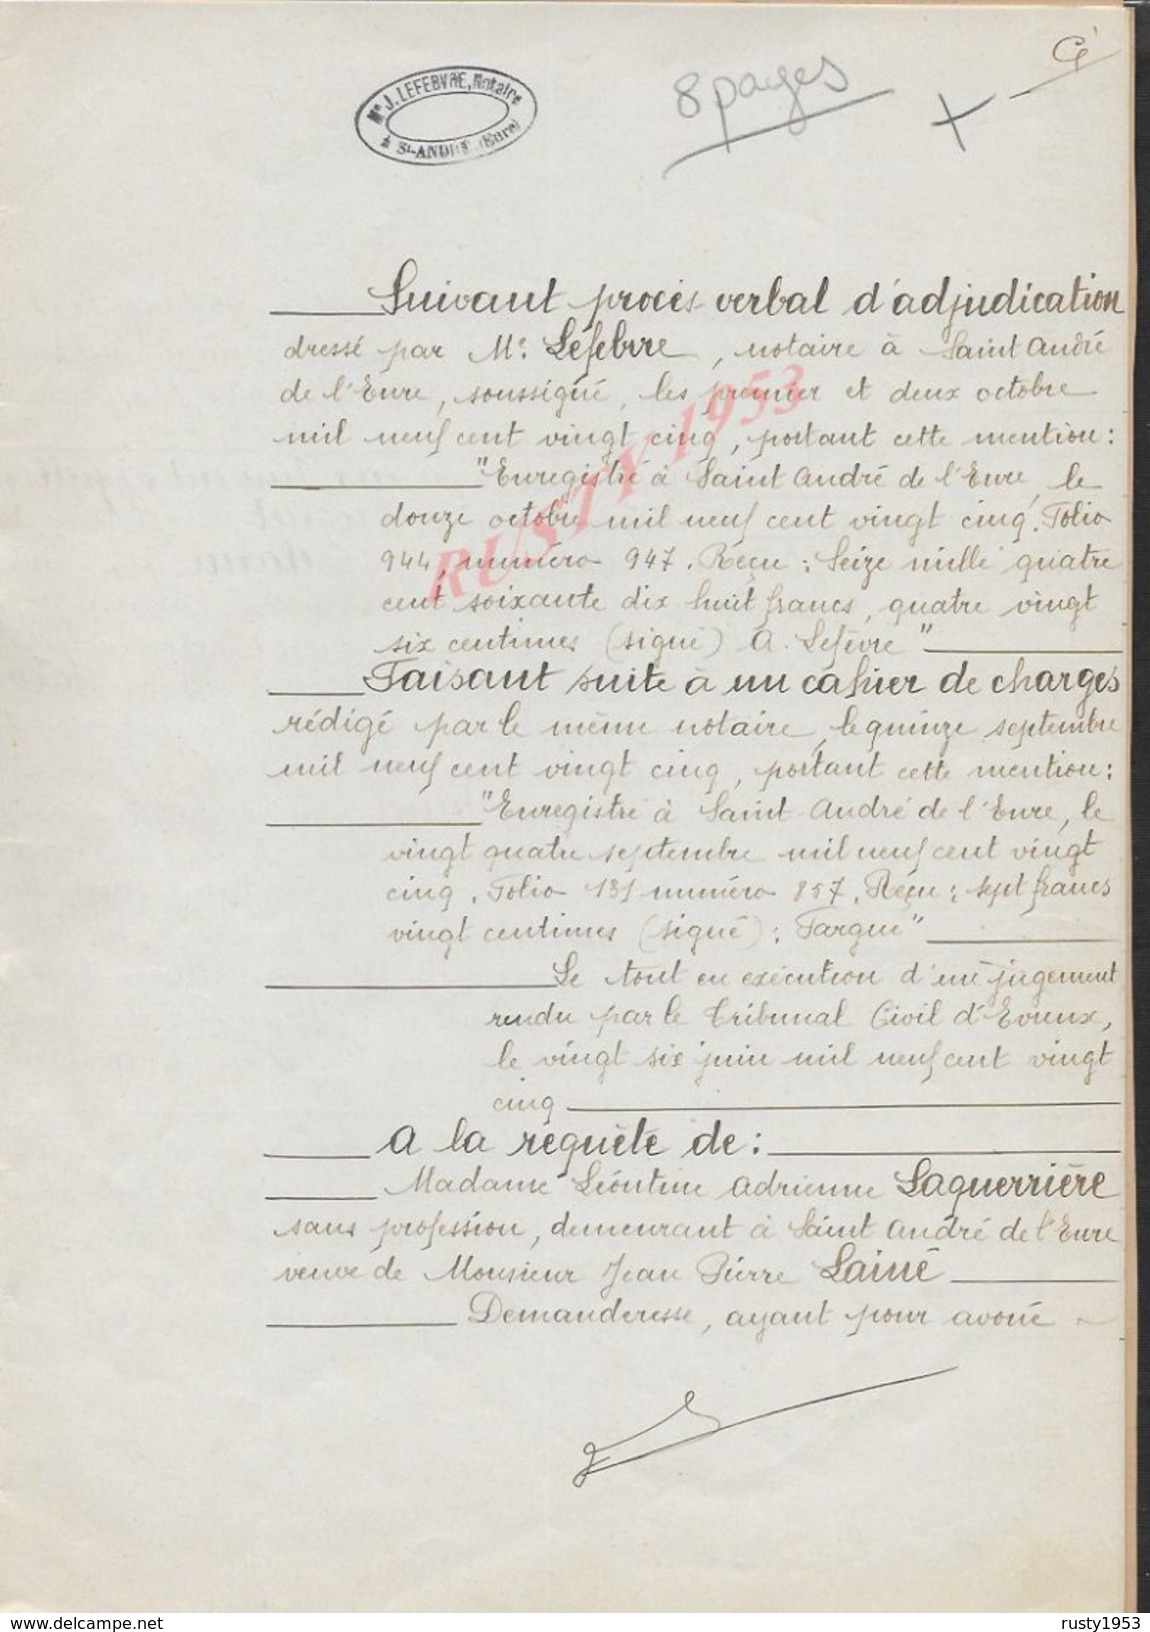 Mᵉ J. LEFEBVRE, Notaire
à Sᵗ-ANDRE (Eure)
8 pages
Suivant procès verbal d'adjudication
dressé par Mᵉ. Lefebvre, notaire à Saint André
de l'Eure, soussigné, les premier et deux octobre
mil neuf cent vingt cinq, portant cette mention:
"Enregistré à Saint André de l'Eure, le
douze octobre mil neuf cent vingt cinq. Folio
944, numéro 947. Reçu: Seize mille quatre
cent soixante dix huit francs, quatre vingt
six centimes (signé) A. Lefèvre"
Faisant suite à un cahier de charges
rédigé par le même notaire, le quinze septembre
mil neuf cent vingt cinq, portant cette mention:
"Enregistré à Saint André de l'Eure, le
vingt quatre septembre mil neuf cent vingt
cinq. Folio numéro 857. Reçu: sept francs
vingt centimes (signé): Fargue"
Le tout en exécution d'un jugement
rendu par le Tribunal Civil d'Evreux,
le vingt six juin mil neuf cent vingt
cinq
A la requête de:
Madame Léontine Adrienne Laguerrière
sans profession, demeurant à Saint André de l'Eure
veuve de Monsieur Jean Pierre Lainé
Demanderesse, ayant pour avoué
RUSTY 1953
www.delcampe.net
rusty1953